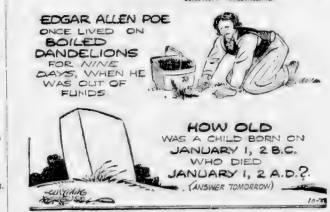 EDGAR ALLEN POE
ONCE LIVED ON
BOILED
DANDELIONS
FOR NINE
DAYS, WHEN HE
WAS OUT OF
FUNDS
HOW OLD
WAS A CHILD BORN ON
JANUARY 1, 2 B.C.
WHO DIED
JANUARY 1, 2 A.D.?
(ANSWER TOMORROW)